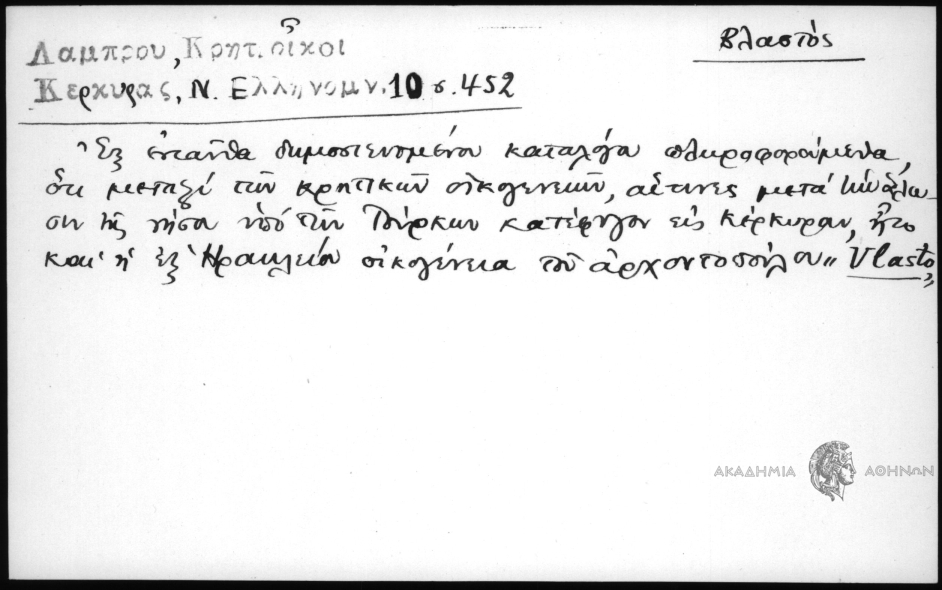 Λαμπρου, Κρητ. οἶκοι
Κερκυρας, Ν. Ελληνομν. 10 σ. 452
Βλαστὸς
Ἐξ ἐνταῦθα δημοσιευομένου καταλόγου πληροφορούμεθα,
ὅτι μεταξὺ τῶν κρητικῶν οἰκογενειῶν, αἵτινες μετὰ τὴν ἅλω-
σιν τῆς νήσου ὑπὸ τῶν Τούρκων κατέφυγον εἰς Κέρκυραν, ἦτο
καὶ ἡ ἐξ Ἡρακλείου οἰκογένεια τοῦ ἀρχοντοπούλου „Vlasto„
ΑΚΑΔΗΜΙΑ ΑΘΗΝΩΝ